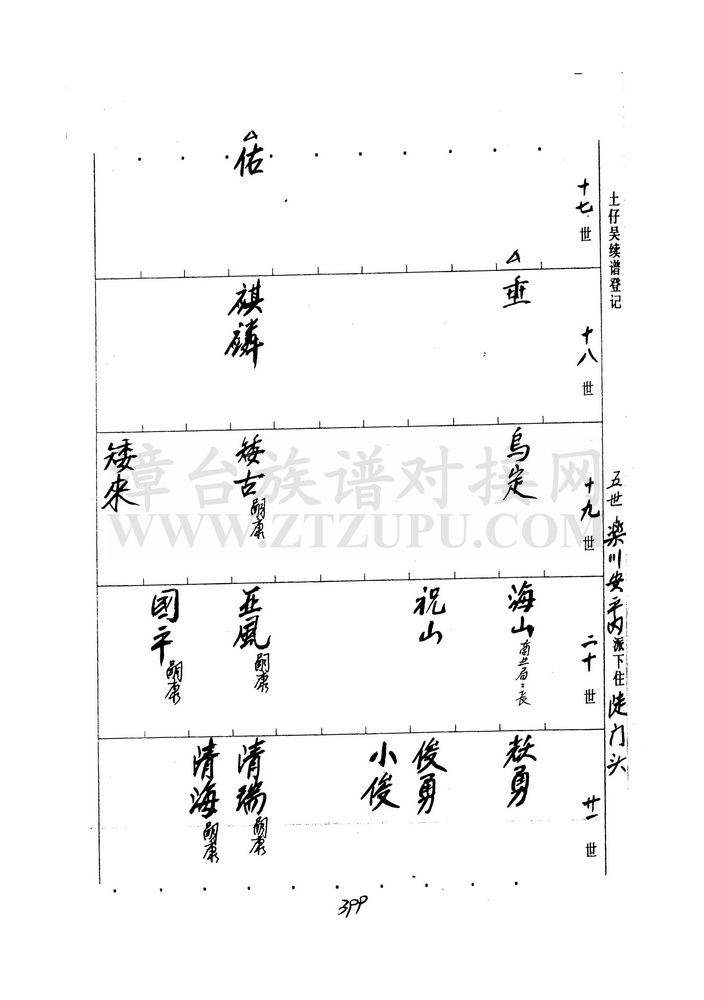 土仔吴续谱登记
五世 栄川安平内 派下住 陡门头
十七世
△佑
十八世
△垂
祺麟
十九世
乌定
矮古 嗣康
矮来
二十世
海山 商业局三長
祝山
亚風 嗣康
國平 嗣康
廿一世
敖勇
俊勇
小俊
清瑞 嗣康
清海 嗣康
399
章台族谱对接网
WWW.ZTZUPU.COM